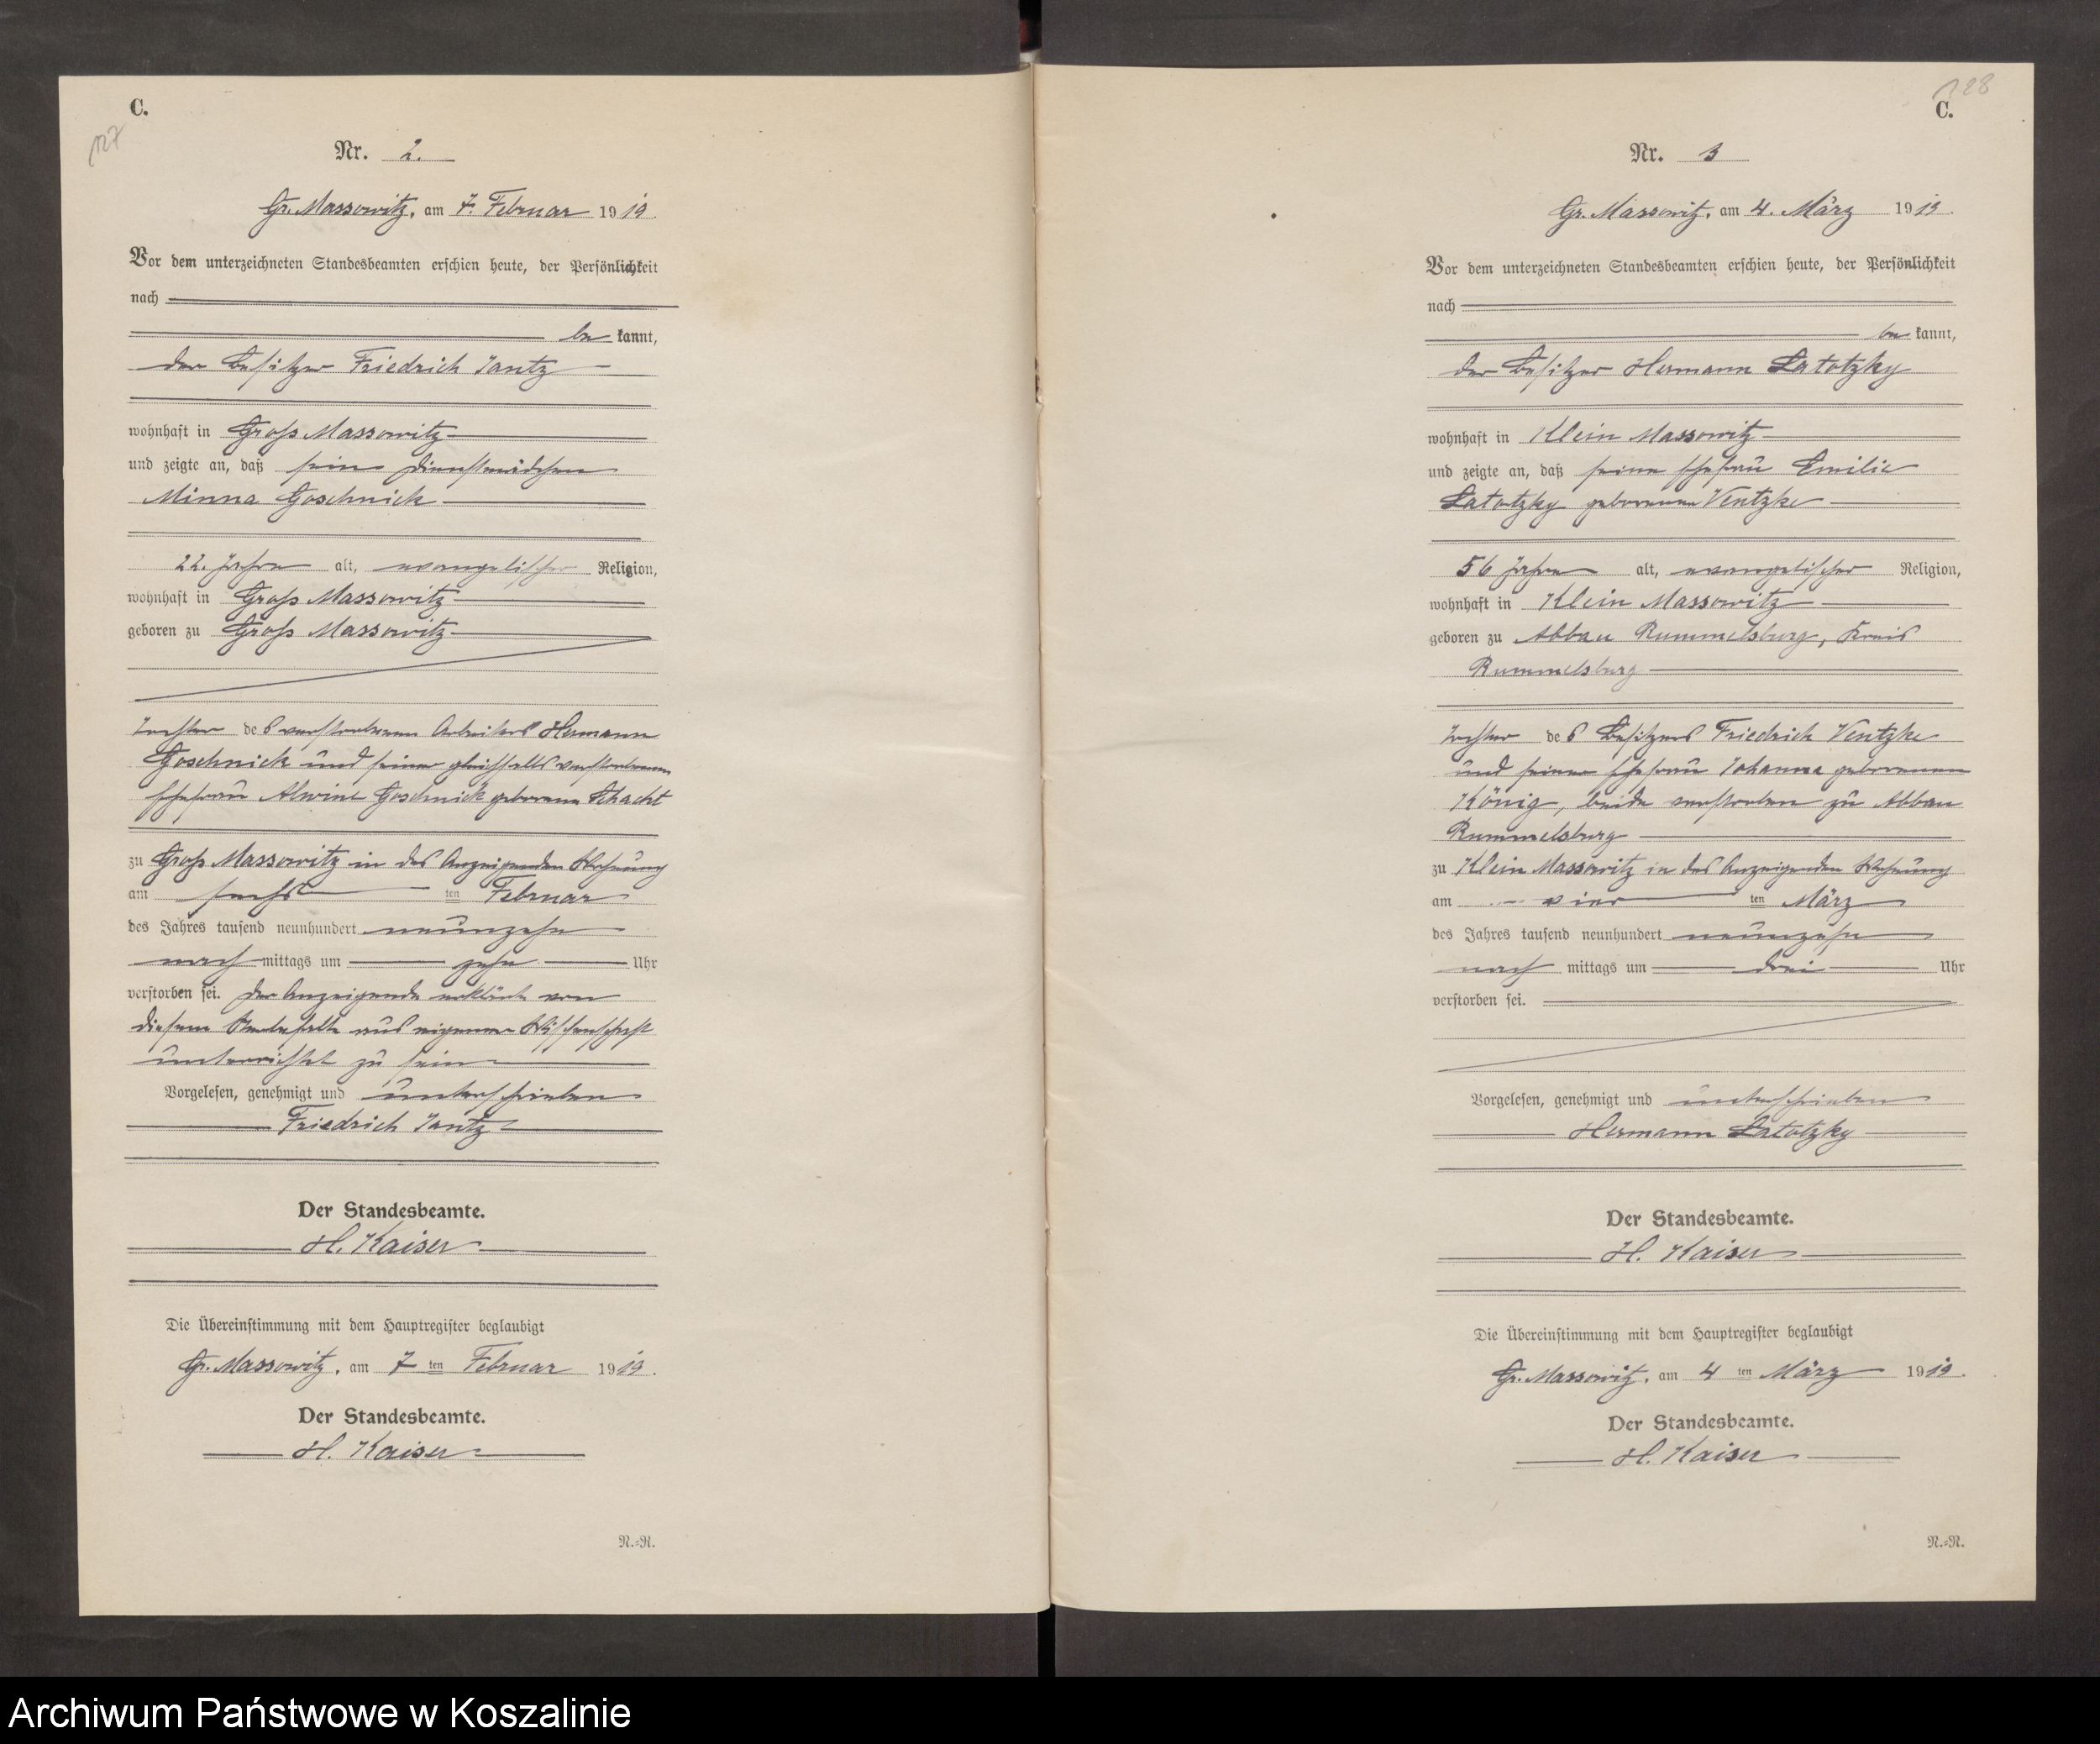 C.
127
Nr. 2.
Gr. Massowitz, am 7. Februar 1919.
Vor dem unterzeichneten Standesbeamten erschien heute, der Persönlichkeit
nach
be kannt,
der Besitzer Friedrich Jantz
wohnhaft in Groß Massowitz
und zeigte an, daß sein Dienstmädchen
Minna Goschnick
22. Jahre alt, evangelischer Religion,
wohnhaft in Groß Massowitz
geboren zu Groß Massowitz
Tochter des verstorbenen Arbeiters Hermann
Goschnick und seiner gleichfalls verstorbenen
Ehefrau Alwine Goschnick geborene Schacht
zu Groß Massowitz in des Anzeigenden Wohnung
am sechs ten Februar
des Jahres tausend neunhundert neunzehn
nach mittags um zehn Uhr
verstorben sei. Der Anzeigende erklärt von
diesem Sterbefalle aus eigener Wissenschaft
unterrichtet zu sein
Vorgelesen, genehmigt und unterschrieben
Friedrich Jantz
Der Standesbeamte.
H. Kaiser
Die Übereinstimmung mit dem Hauptregister beglaubigt
Gr. Massowitz, am 7 ten Februar 1919.
Der Standesbeamte.
H. Kaiser
N.=R.
128
C.
Nr. 3
Gr. Massowitz, am 4. März 1919.
Vor dem unterzeichneten Standesbeamten erschien heute, der Persönlichkeit
nach
be kannt,
der Besitzer Hermann Latotzky
wohnhaft in Klein Massowitz
und zeigte an, daß seine Ehefrau Emilie
Latotzky geborenen Ventzke
56 Jahre alt, evangelischer Religion,
wohnhaft in Klein Massowitz
geboren zu Abbau Rummelsburg, Kreis
Rummelsburg
Tochter des Besitzers Friedrich Ventzke
und seiner Ehefrau Johanna geborenen
König, beide verstorben zu Abbau
Rummelsburg
zu Klein Massowitz in des Anzeigenden Wohnung
am vier ten März
des Jahres tausend neunhundert neunzehn
nach mittags um drei Uhr
verstorben sei.
Vorgelesen, genehmigt und unterschrieben
Hermann Latotzky
Der Standesbeamte.
H. Kaiser
Die Übereinstimmung mit dem Hauptregister beglaubigt
Gr. Massowitz, am 4 ten März 1919.
Der Standesbeamte.
H. Kaiser
N.=R.
Archiwum Państwowe w Koszalinie